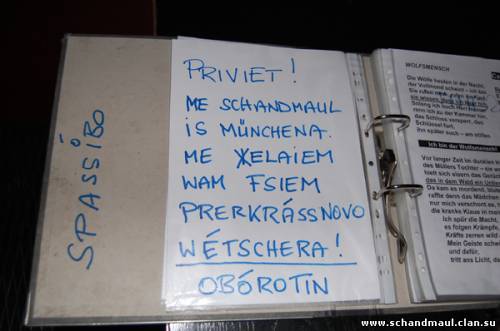 SPASSÍBO
PRIVIET!
ME SCHANDMAUL
IS MÜNCHENA.
ME ЖELAIEM
WAM FSIEM
PRERKRÁSSNOVO
WÉTSCHERA!
OBÓROTIN
WOLFSMENSCH
Die Wölfe heulen in der Nacht,
der Vollmond scheint – ich
Sie rufen
sie wissen
Solang ich noch
renn ich zu der Kammer hin,
das Schloss versperrt, den
Schlüssel fort,
ihn später such – am stillen
Ich bin der Wolfsmensch!
Vor langer Zeit im dunklen
des Müllers Tochter – sie
hielt sich eisern das
das in dem Wald ein
Da kam es mordend,
raffte denn das Mädchen
nur verschont es,
die kranke Klaue in
Ich spür die Macht,
es folgen Krämpfe,
Kräfte zerren wild
Mein Geiste
und dafür,
tritt ans Licht,
www.schandmaul.clan.su